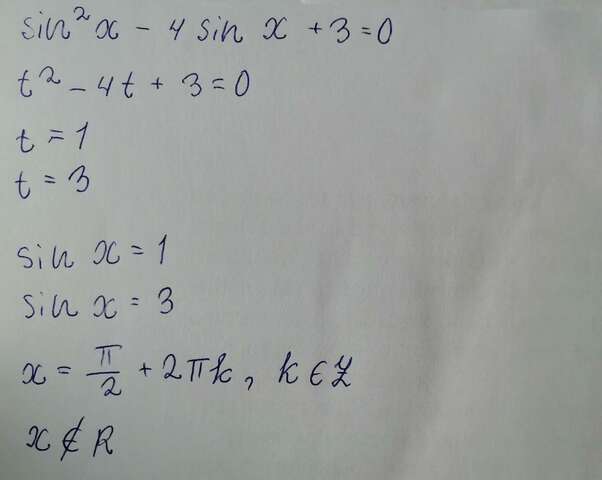 sin²x - 4 sin x + 3 = 0
t² - 4t + 3 = 0
t = 1
t = 3
sin x = 1
sin x = 3
x = π/2 + 2πk, k ∈ Z
x ∉ R